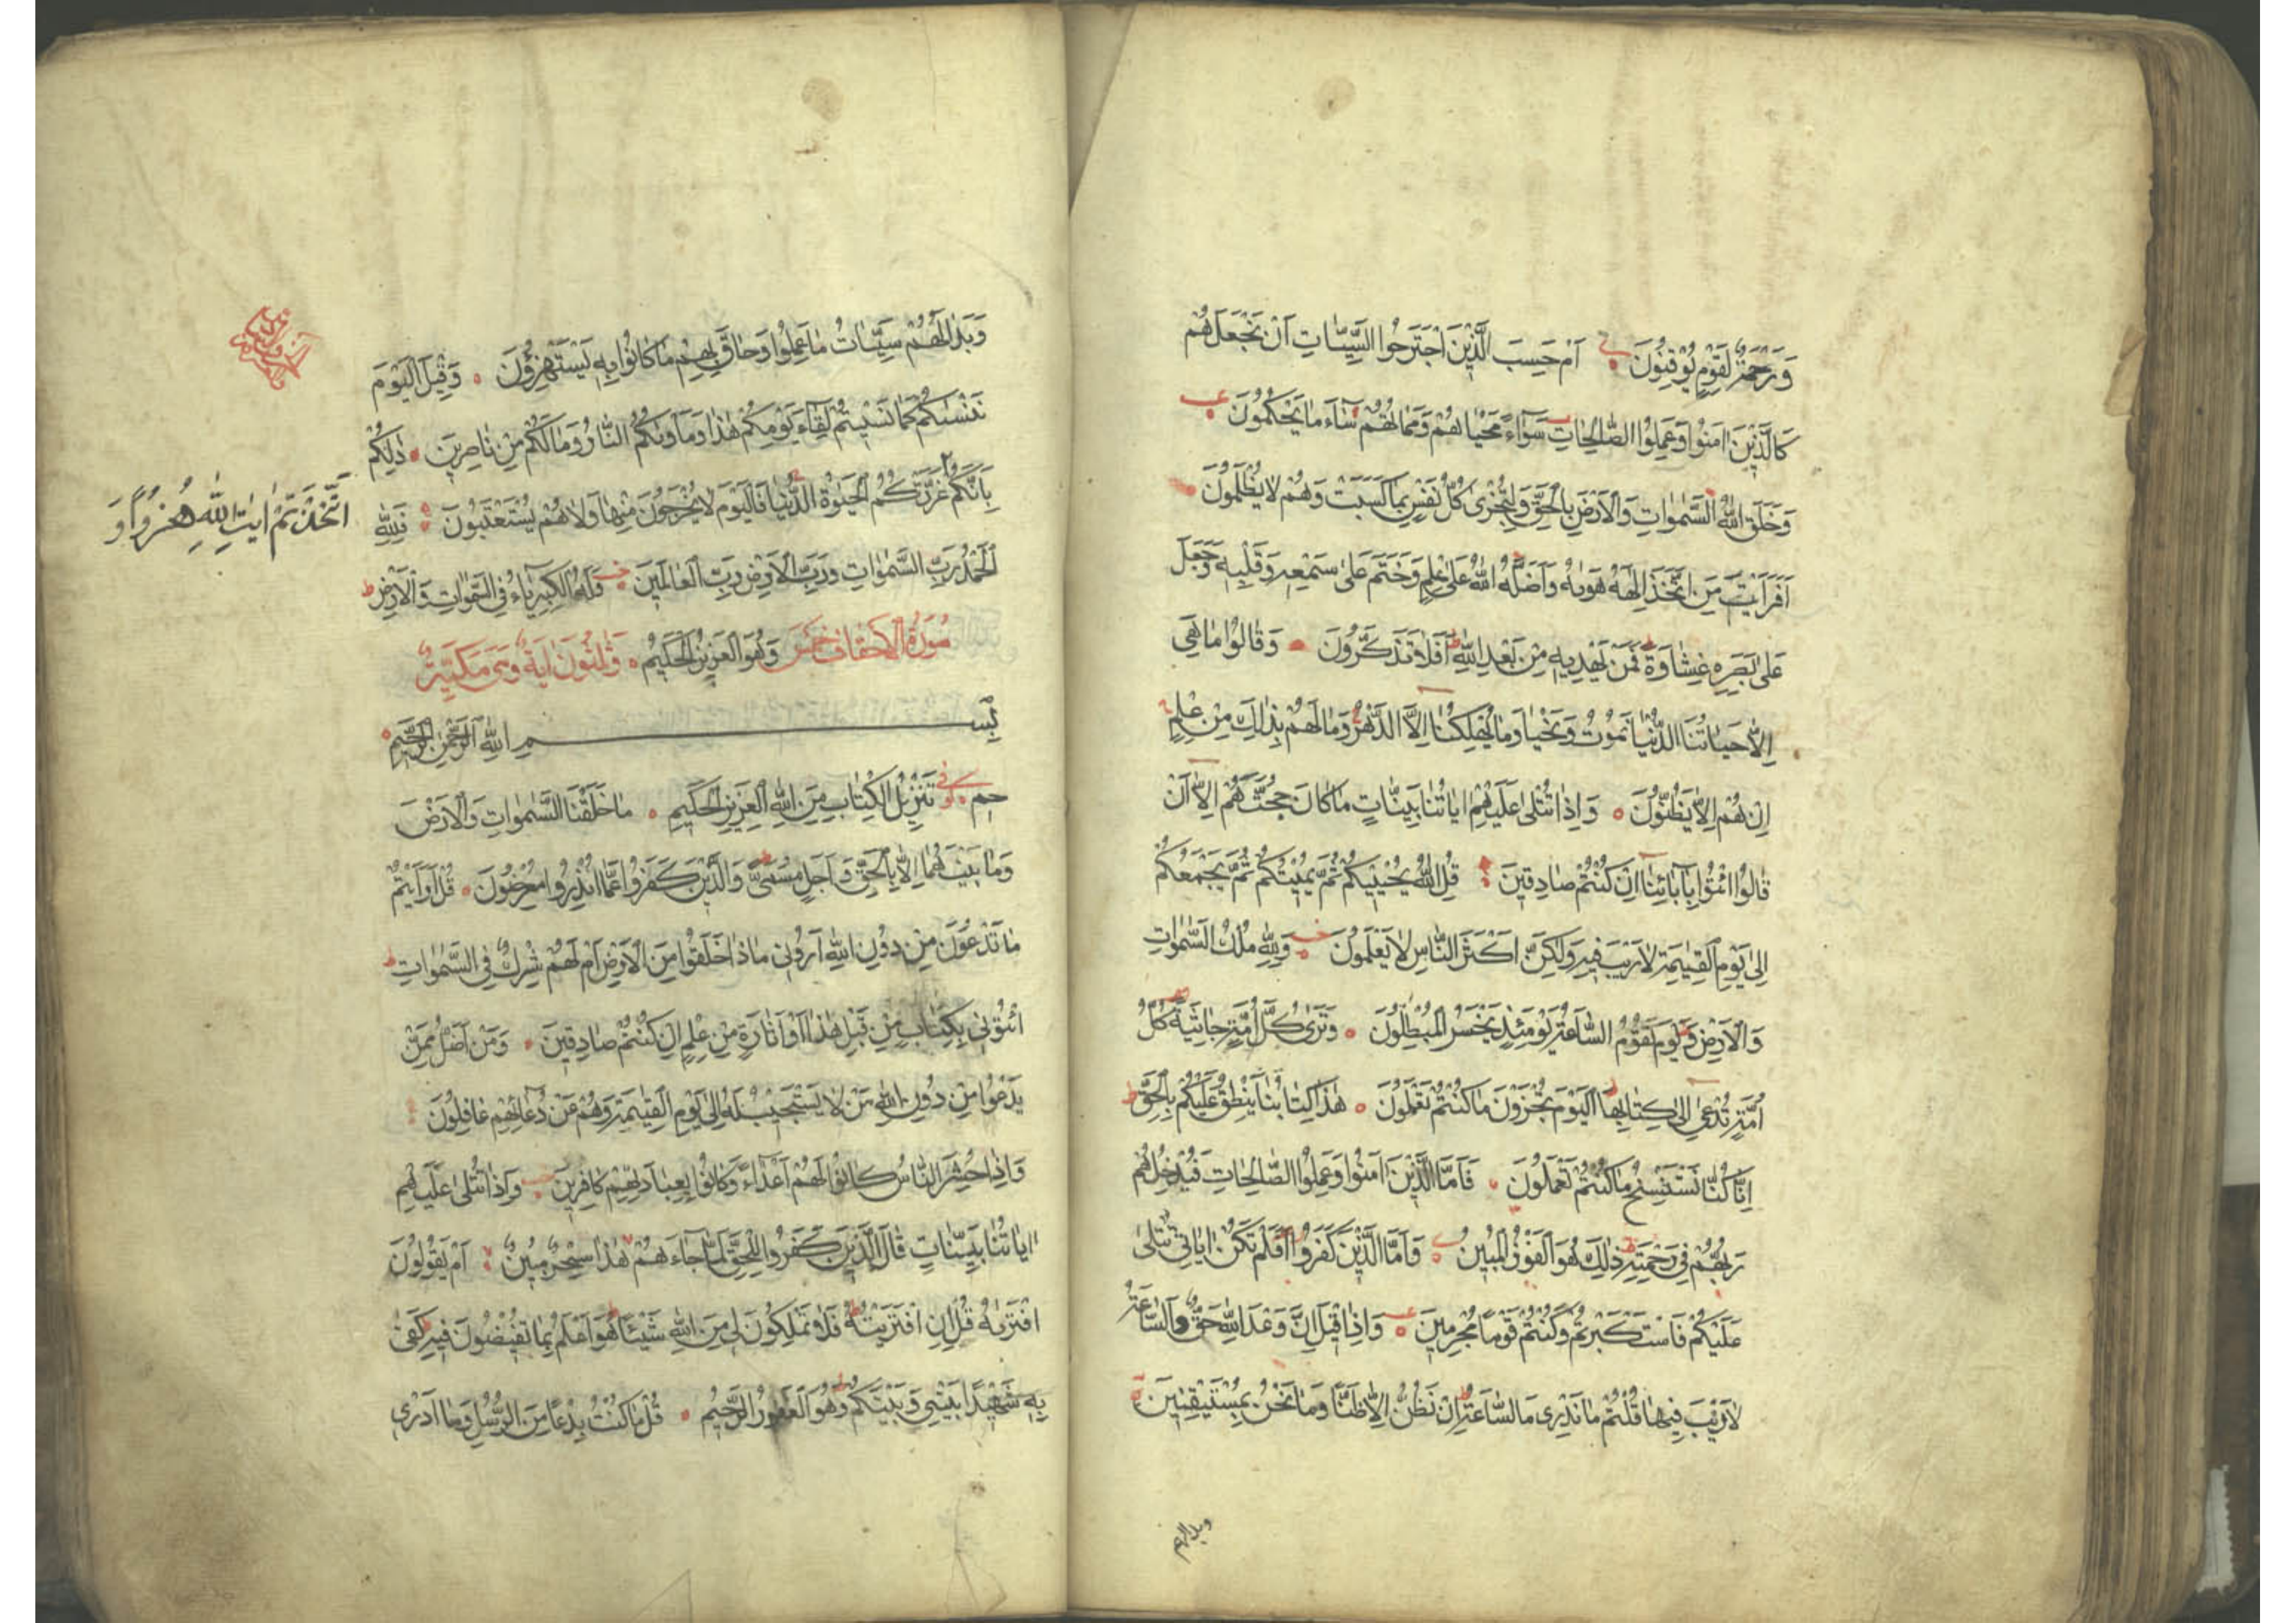 وَرَحْمَةٌ لِقَوْمٍ يُوقِنُونَ اَمْ حَسِبَ الَّذِينَ اجْتَرَحُوا السَّيِّئَاتِ اَنْ نَجْعَلَهُمْ
كَالَّذِينَ اٰمَنُوا وَعَمِلُوا الصَّالِحَاتِ سَوَاءً مَحْيَاهُمْ وَمَمَاتُهُمْ سَاءَ مَا يَحْكُمُونَ
وَخَلَقَ اللّٰهُ السَّمٰوَاتِ وَالْاَرْضَ بِالْحَقِّ وَلِتُجْزٰى كُلُّ نَفْسٍ بِمَا كَسَبَتْ وَهُمْ لَا يُظْلَمُونَ
اَفَرَاَيْتَ مَنِ اتَّخَذَ اِلٰهَهُ هَوٰيهُ وَاَضَلَّهُ اللّٰهُ عَلٰى عِلْمٍ وَخَتَمَ عَلٰى سَمْعِهِ وَقَلْبِهِ وَجَعَلَ
عَلٰى بَصَرِهِ غِشَاوَةً فَمَنْ يَهْدِيهِ مِنْ بَعْدِ اللّٰهِ اَفَلَا تَذَكَّرُونَ وَقَالُوا مَا هِيَ
اِلَّا حَيَاتُنَا الدُّنْيَا نَمُوتُ وَنَحْيَا وَمَا يُهْلِكُنَا اِلَّا الدَّهْرُ وَمَا لَهُمْ بِذٰلِكَ مِنْ عِلْمٍ
اِنْ هُمْ اِلَّا يَظُنُّونَ وَاِذَا تُتْلٰى عَلَيْهِمْ اٰيَاتُنَا بَيِّنَاتٍ مَا كَانَ حُجَّتَهُمْ اِلَّا اَنْ
قَالُوا ائْتُوا بِاٰبَائِنَا اِنْ كُنْتُمْ صَادِقِينَ قُلِ اللّٰهُ يُحْيِيكُمْ ثُمَّ يُمِيتُكُمْ ثُمَّ يَجْمَعُكُمْ
اِلٰى يَوْمِ الْقِيٰمَةِ لَا رَيْبَ فِيهِ وَلٰكِنَّ اَكْثَرَ النَّاسِ لَا يَعْلَمُونَ وَلِلّٰهِ مُلْكُ السَّمٰوَاتِ
وَالْاَرْضِ وَيَوْمَ تَقُومُ السَّاعَةُ يَوْمَئِذٍ يَخْسَرُ الْمُبْطِلُونَ وَتَرٰى كُلَّ اُمَّةٍ جَاثِيَةً كُلُّ
اُمَّةٍ تُدْعٰى اِلٰى كِتَابِهَا اَلْيَوْمَ تُجْزَوْنَ مَا كُنْتُمْ تَعْمَلُونَ هٰذَا كِتَابُنَا يَنْطِقُ عَلَيْكُمْ بِالْحَقِّ
اِنَّا كُنَّا نَسْتَنْسِخُ مَا كُنْتُمْ تَعْمَلُونَ فَاَمَّا الَّذِينَ اٰمَنُوا وَعَمِلُوا الصَّالِحَاتِ فَيُدْخِلُهُمْ
رَبُّهُمْ فِي رَحْمَتِهِ ذٰلِكَ هُوَ الْفَوْزُ الْمُبِينُ وَاَمَّا الَّذِينَ كَفَرُوا اَفَلَمْ تَكُنْ اٰيَاتِي تُتْلٰى
عَلَيْكُمْ فَاسْتَكْبَرْتُمْ وَكُنْتُمْ قَوْمًا مُجْرِمِينَ وَاِذَا قِيلَ اِنَّ وَعْدَ اللّٰهِ حَقٌّ وَالسَّاعَةُ
لَا رَيْبَ فِيهَا قُلْتُمْ مَا نَدْرِي مَا السَّاعَةُ اِنْ نَظُنُّ اِلَّا ظَنًّا وَمَا نَحْنُ بِمُسْتَيْقِنِينَ
وبدا لهم
وَبَدَا لَهُمْ سَيِّئَاتُ مَا عَمِلُوا وَحَاقَ بِهِمْ مَا كَانُوا بِهِ يَسْتَهْزِؤُنَ وَقِيلَ الْيَوْمَ
نَنْسٰيكُمْ كَمَا نَسِيتُمْ لِقَاءَ يَوْمِكُمْ هٰذَا وَمَأْوٰيكُمُ النَّارُ وَمَا لَكُمْ مِنْ نَاصِرِينَ ذٰلِكُمْ
بِاَنَّكُمْ غَرَّتْكُمُ الْحَيٰوةُ الدُّنْيَا فَالْيَوْمَ لَا يُخْرَجُونَ مِنْهَا وَلَا هُمْ يُسْتَعْتَبُونَ فَلِلّٰهِ
اتَّخَذْتُمْ اٰيٰتِ اللّٰهِ هُزُوًا وَ
الْحَمْدُ رَبِّ السَّمٰوَاتِ وَرَبِّ الْاَرْضِ رَبِّ الْعَالَمِينَ وَلَهُ الْكِبْرِيَاءُ فِي السَّمٰوَاتِ وَالْاَرْضِ
سُورَةُ الْاَحْقَافِ خَمْسَ وَهُوَ الْعَزِيزُ الْحَكِيمُ وَثَلٰثُونَ اٰيَةً وَهِيَ مَكِّيَّةٌ
بِسْمِ اللّٰهِ الرَّحْمٰنِ الرَّحِيمِ
حم تَنْزِيلُ الْكِتَابِ مِنَ اللّٰهِ الْعَزِيزِ الْحَكِيمِ مَا خَلَقْنَا السَّمٰوَاتِ وَالْاَرْضَ
وَمَا بَيْنَهُمَا اِلَّا بِالْحَقِّ وَاَجَلٍ مُسَمًّى وَالَّذِينَ كَفَرُوا عَمَّا اُنْذِرُوا مُعْرِضُونَ قُلْ اَرَاَيْتُمْ
مَا تَدْعُونَ مِنْ دُونِ اللّٰهِ اَرُونِي مَاذَا خَلَقُوا مِنَ الْاَرْضِ اَمْ لَهُمْ شِرْكٌ فِي السَّمٰوَاتِ
ائْتُونِي بِكِتَابٍ مِنْ قَبْلِ هٰذَا اَوْ اَثَارَةٍ مِنْ عِلْمٍ اِنْ كُنْتُمْ صَادِقِينَ وَمَنْ اَضَلُّ مِمَّنْ
يَدْعُوا مِنْ دُونِ اللّٰهِ مَنْ لَا يَسْتَجِيبُ لَهُ اِلٰى يَوْمِ الْقِيٰمَةِ وَهُمْ عَنْ دُعَائِهِمْ غَافِلُونَ
وَاِذَا حُشِرَ النَّاسُ كَانُوا لَهُمْ اَعْدَاءً وَكَانُوا بِعِبَادَتِهِمْ كَافِرِينَ وَاِذَا تُتْلٰى عَلَيْهِمْ
اٰيَاتُنَا بَيِّنَاتٍ قَالَ الَّذِينَ كَفَرُوا لِلْحَقِّ لَمَّا جَاءَهُمْ هٰذَا سِحْرٌ مُبِينٌ اَمْ يَقُولُونَ
افْتَرٰيهُ قُلْ اِنِ افْتَرَيْتُهُ فَلَا تَمْلِكُونَ لِي مِنَ اللّٰهِ شَيْئًا هُوَ اَعْلَمُ بِمَا تُفِيضُونَ فِيهِ كَفٰى
بِهِ شَهِيدًا بَيْنِي وَبَيْنَكُمْ وَهُوَ الْغَفُورُ الرَّحِيمُ قُلْ مَا كُنْتُ بِدْعًا مِنَ الرُّسُلِ وَمَا اَدْرِي